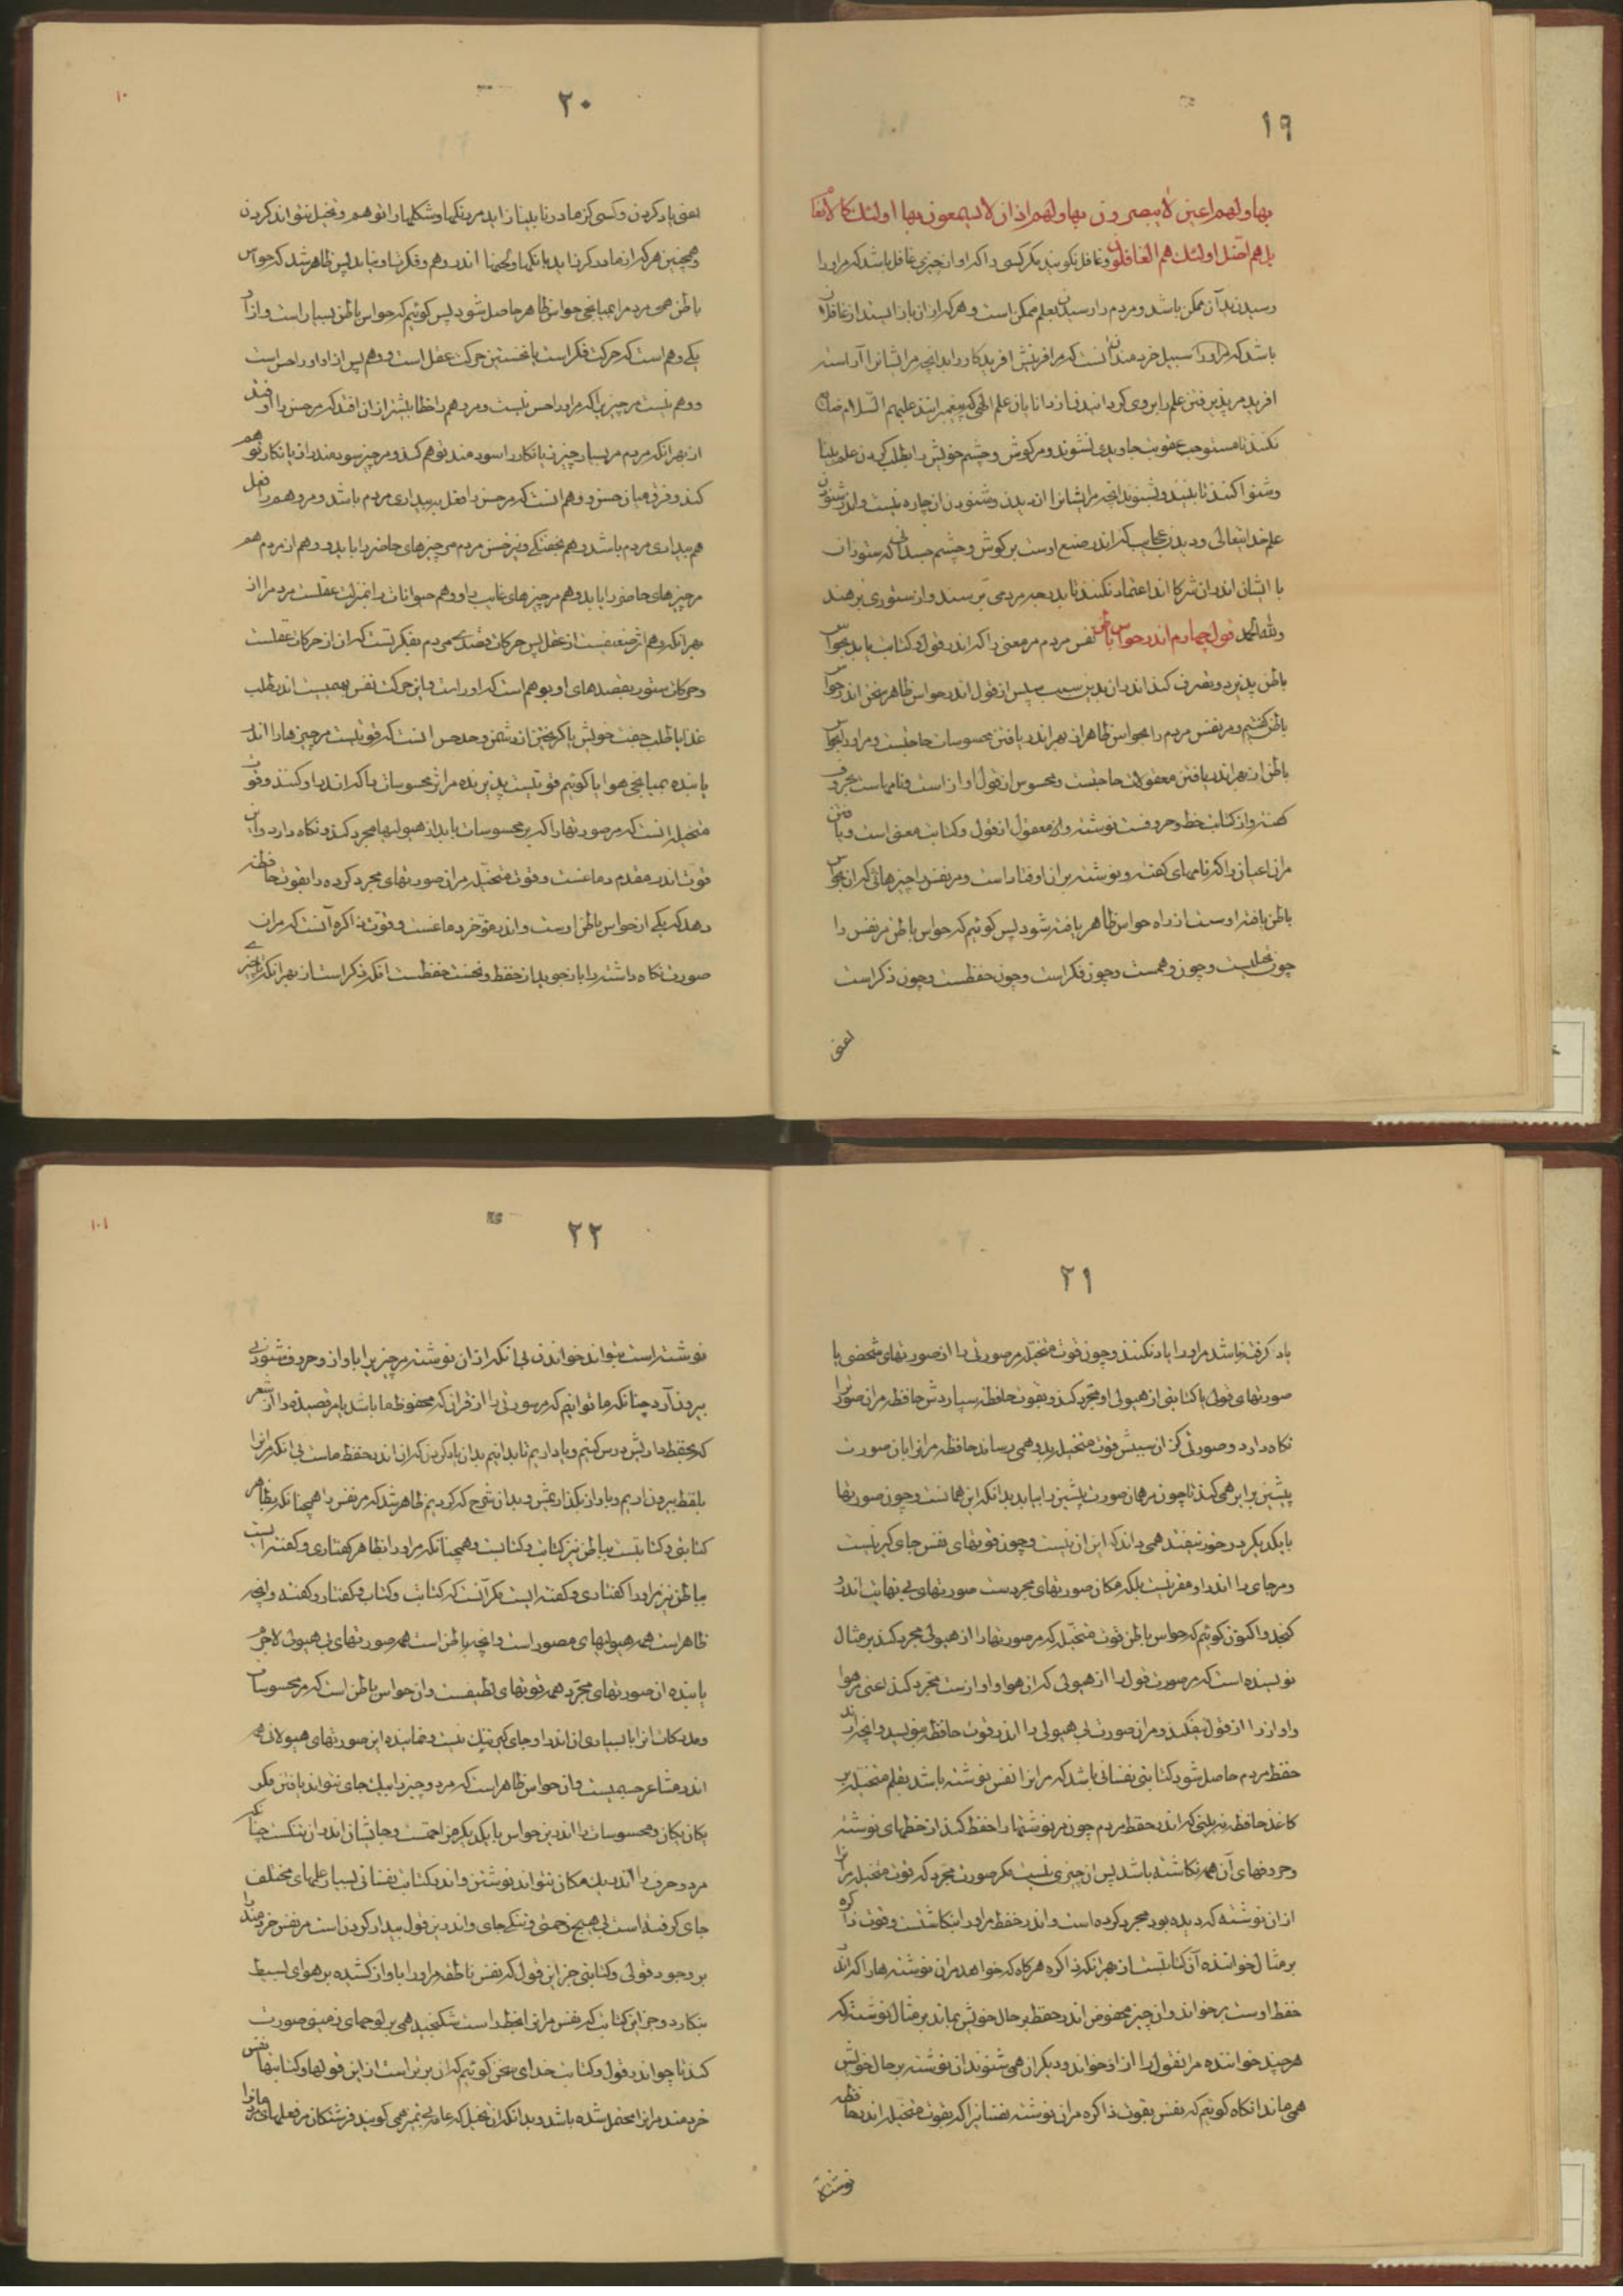 ۱۹
بها و لهم اعین لا یبصرون بها و لهم اذان لا یسمعون بها اولئک کالانعام
بل هم اضل اولئک هم الغافلون و غافل نگویند مگر کسی را که او از چیزی غافل باشد که مر او را
رسیدن بدان ممکن باشد و مردم را رسیدن بعلم ممکن است و هر که از ان باز ایستد از غافلان
باشد که مر او را سبیل خردمندان انست که مر افرینش افریدکار را بدانچه مر ایشانرا آراسته
افرید مر پذیرفتن علم را بر وی کردانیدن از دانایان علم الهی که پیغمبرانند علیهم السلام ضایع
نکنند تا مستوجب عقوبت جاویدی نشوند و مر کوش و چشم خویش را بطلب کردن علم بینا
و شنوا کنند تا ببینند و بشنوند انچه مر ایشانرا از دیدن و شنودن ان چاره نیست و از شنودن
علم خدایتعالی و دیدن عجایب که اندر صنع اوست بر کوش و چشم جسدانی که ستوران
با ایشان اندر ان شرکا اند اعتماد نکنند تا بدرجه مردمی برسند و از ستوری برهند
و لله الحمد قول چهارم اندر حواس باطن نفس مردم مر معنی را که اندر قول و کتابت یابد بحواس
باطن پذیرد و تصرف کند اندر ان بدین سبب سپس از قول اندر حواس ظاهر سخن اندر حواس
باطن کفتیم و مر نفس مردم را بحواس ظاهر از بهر اندر یافتن محسوسات حاجتست و مر او را بحواس
باطن از بهر اندر یافتن معقولات حاجتست و محسوس از قول آواز است و نامهاست بحروف
کفته و از کتابت خط و حروفست نوشته و از معقول از قول و کتابت معنی است و یافتن
مر ان اعیان را که نامهای کفته و نوشته بر ان اوفتاد است و مر نفس را چیزهائی که ان بحواس
باطن یافته اوست از راه حواس ظاهر یافته شود پس کوئیم که حواس باطن مر نفس را
چون تخیلست و چون وهمست و چون فکر است و چون حفظست و چون ذکر است
یعنی
۲۰
۱۰
یعنی یاد کردن و کسی کز مادر نابینا زاید مر رنگها و شکلها را توهم و تخیل نتواند کردن
و همچنین هر که از مادر کر زاید بانگها و لحنها اندر وهم و فکر او نیاید پس ظاهر شد که حواس
باطن همی مردم را بمیانجی حواس ظاهر حاصل شود پس کوئیم که حواس باطن بسیار است و از ان
یکی وهم است که حرکت فکر است یا نخستین حرکت عقل است و وهم پس از او او را حس است
و وهم نیست مر چیزیرا که مر او را حس نیست و مر وهم را خطا بیشتر از ان افتد که مر حس را افتد
از بهر انکه مردم مر بسیار چیز زیانکار را سودمند توهم کند و مر چیز سودمند را زیانکار توهم
کند و فرق میان حس و وهم انست که مر حس را فعل ببیداری مردم باشد و مر وهم را فعل
هم ببیداری مردم باشد و هم بخفتگی و نیز حس مردم مر چیزهای حاضر را یابد و وهم از مردم هم
مر چیزهای حاضر را یابد و هم مر چیزهای غایب را و وهم حیوانات را بمنزلت عقلست مردم را از
بهر انکه وهم اثر ضعیفست از عقل پس حرکات و قصدهای مردم بفکرتست که ان از حرکات عقلست
و حرکات ستور بقصدهای او بوهم است که او راست و این حرکت نفس بهیمیست اندر طلب
غذا یا طلب جفت خویش یا کریختن از دشمن و حد حس انست که قوتیست مر چیزها را اندر
یابنده بمیانجی هوا یا کوئیم قوتیست پذیرنده مر اثر محسوسات را که اندر او کنند و قوت
متخیله انست که مر صورتها را که بر محسوسات یابد از هیولیها مجرد کند و نگاه دارد و این
قوت اندر مقدم دماغست و قوت متخیله مر ان صورتهای مجرد کرده را بقوت حافظه
دهد که یکی از حواس باطن اوست و اندر مؤخر دماغست و قوت ذاکره آنست که مر ان
صورت نگاه داشته را باز جوید از حفظ و نخست حفظست انگه ذکر است از بهر انکه تا چیزی
۲۱
یاد کرفته باشد مر او را یاد نکنند و چون قوت متخیله مر صورتی را از صورتهای شخصی یا
صورتهای قولی یا کتابتی از هیولی او مجرد کند و بقوت حافظه سپاردش حافظه مر ان صورترا
نگاه دارد و صورتی کز ان سپس قوت متخیله بدو همی رساند حافظه مر انرا با ان صورت
پیشین برابر همی کند تا چون مر همان صورت پیشین را بیابد بداند که این همانست و چون صورتها
با یکدیگر در خور نیفتد همی داند که این ان نیست و چون قوتهای نفس جای کیر نیست
و مر جای را اندر او مقر نیست بلکه مکان صورتهای مجردست صورتهای بی نهایت اندر او
کنجد و اکنون کوئیم که حواس باطن قوت متخیله که مر صورتها را از هیولی مجرد کند بر مثال
نویسنده است که مر صورت قول را از هیولی که ان هوا و اواز ست مجرد کند یعنی مر هوا
و اواز را از قول بیفکند و مر ان صورت بی هیولی را اندر قوت حافظه بنویسد و انچه اندر
حفظ مردم حاصل شود کتابتی نفسانی باشد که مر انرا نفس نوشته باشد بقلم متخیله بر
کاغذ حافظه نه بینی که اندر حفظ مردم چون مر نوشتها را حفظ کند از خطهای نوشته
و حرفهای آن همه نکاشته باشد پس ان چیزی نیست مکر صورت مجرد که قوت متخیله مر انرا
از ان نوشته که دیده بود مجرد کرده است و اندر حفظ مر او را بنکاشتست و قوت ذاکره
بر مثال خواننده آن کتابتست از بهر انکه ذاکره هر کاه که خواهد مر ان نوشته ها را که اندر
حفظ اوست بر خواند و ان چیز محفوض اندر حفظ بر حال خویش بماند بر مثال نوشته که
هر چند خواننده مر انقول را از او خواند و دیگران همی شنوند ان نوشته بر حال خویش
همی ماند انکاه کوئیم که نفس بقوت ذاکره مر ان نوشته نفسانیرا که بقوت متخیله اندر حافظه
نوشته
۲۲
۱۰۱
نوشته است بتواند خواندن بی انکه از ان نوشته مر چیزیرا باواز و حروف شنودنی
بیرون آرد چنانکه ما توانیم که مر سورتی را از قران که محفوظ ما باشد یا مر قصیده را از شعر
که بحفظ داریمش درس کنیم و یاد اریم تا بدانیم بدان یاد کردن که ان اندر حفظ ماست بی انکه مر انرا
بلفظ بیرون اریم و باواز بگذاریمش و بدان شرح که کردیم ظاهر شد که مر نفس را همچنانکه بظاهر
کتابتی و کتابتست بباطن نیز کتابت و کتابست و همچنانکه مر او را بظاهر کفتاری و کفته ایست
بباطن نیز مر او را کفتاری و کفته ایست مکر آنست که کتابت و کتاب و کفتار و کفته و انچه
ظاهر است همه هیولیهای مصور است و انچه باطن است همه صورتهای بی هیولی لاجرم
یابنده ان صورتهای مجرد همه قوتهای لطیفست و ان حواس باطن است که مر محسوسات
و مدرکات انرا با بسیاری از اندر او جای کیر نیست و نماینده این صورتهای هیولانی هم
اندر مشاعر جسمیست و ان حواس ظاهر است که مر دو چیز را بیک جای نتواند یافتن مکر
یکان یکان و محسوسات را اندر این حواس با یکدیگر مزاحمتست و جایشان اندر ان تنکست چنانکه
مر دو حرف را اندر یک مکان نتواند نوشتن و اندر کتابت نفسانی بسیار علمهای مختلف
جای کرفته است بی هیچ زحمتی و تنکی جای و اندر این قول بیدار کردن است مر نفس خردمند را
بر وجود قولی و کتابتی جز این قول که نفس ناطقه مر او را باواز کشیده بر هوای بسیط
بنکارد و جز این کتابت که نفس مر انرا بخط راست شکنجیده همی بر لوحهای زمینی صورت
کند تا چو اندر قول و کتابت خدای سخن کوئیم که ان برتر است از این قولها و کتابتها نفس
خردمند مر انرا محتمل شده باشد و بدانکه ان تخیل که عامه بی تمیز همی کویند فرشتگان مر فعلهای مردمانرا